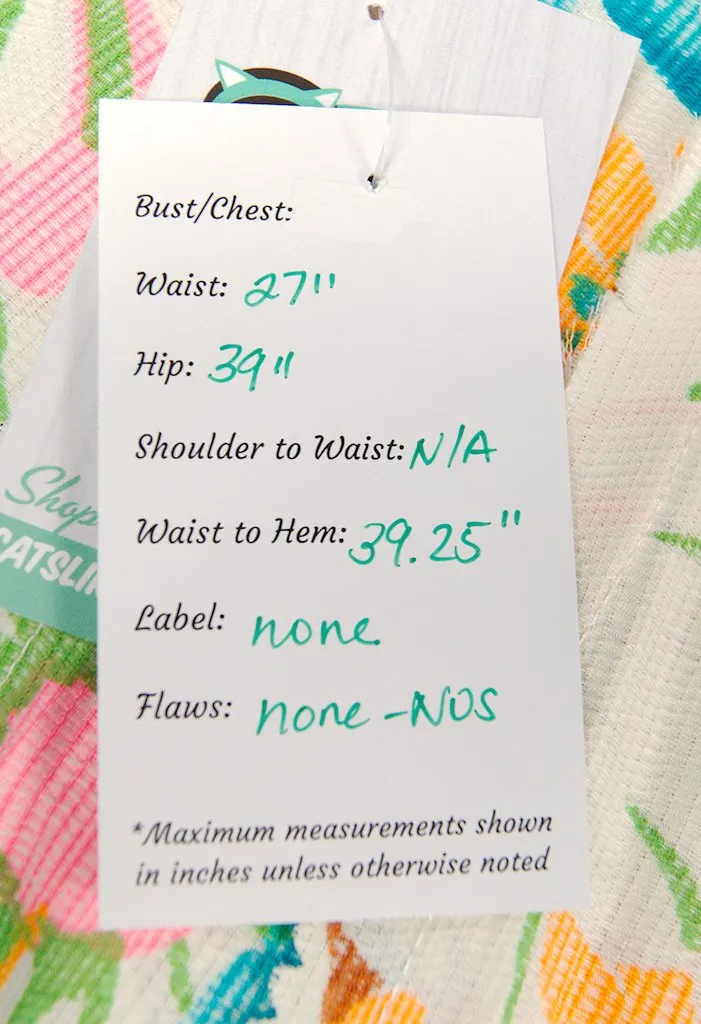 Bust/Chest:
Waist: 27"
Hip: 39"
Shoulder to Waist: N/A
Waist to Hem: 39.25"
Label: none
Flaws: none - NOS
*Maximum measurements shown
in inches unless otherwise noted
Shop